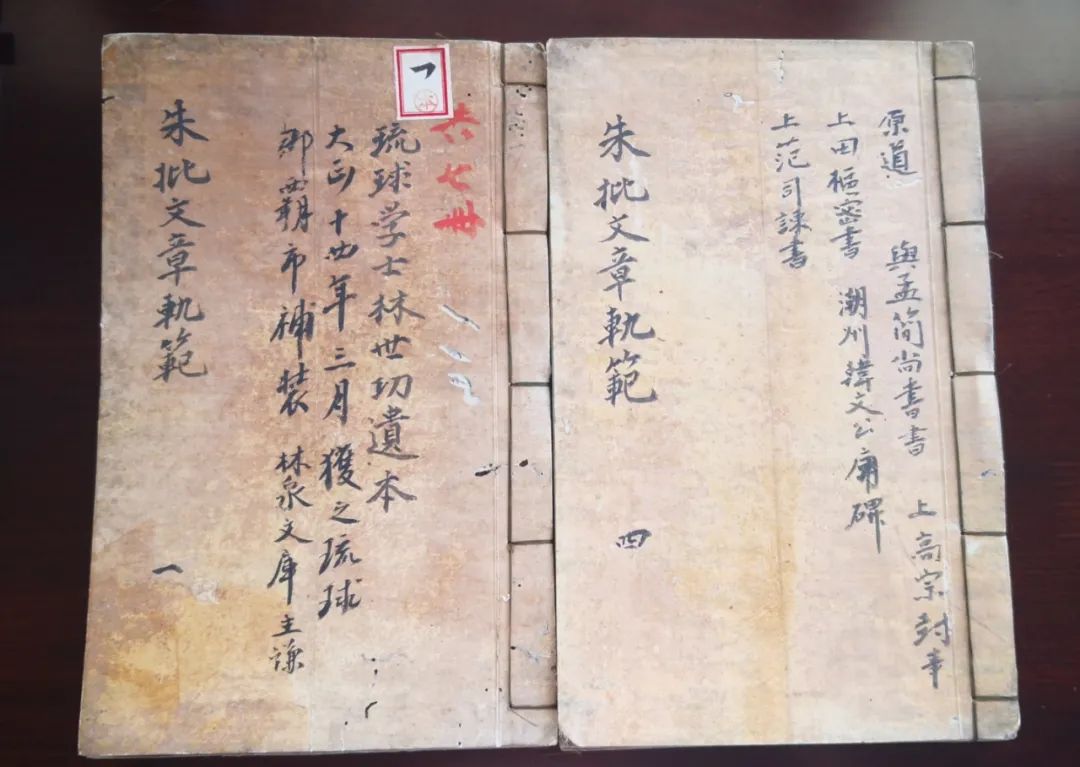 原道　與孟簡尚書書　上高宗封事
上田樞密書　潮州韓文公廟碑
上范司諫書
朱批文章軌範　四
一
共七冊
琉球学士林世功遺本
大正十四年三月獲之琉球
那覇市補装　林泉文庫主謙
朱批文章軌範　一